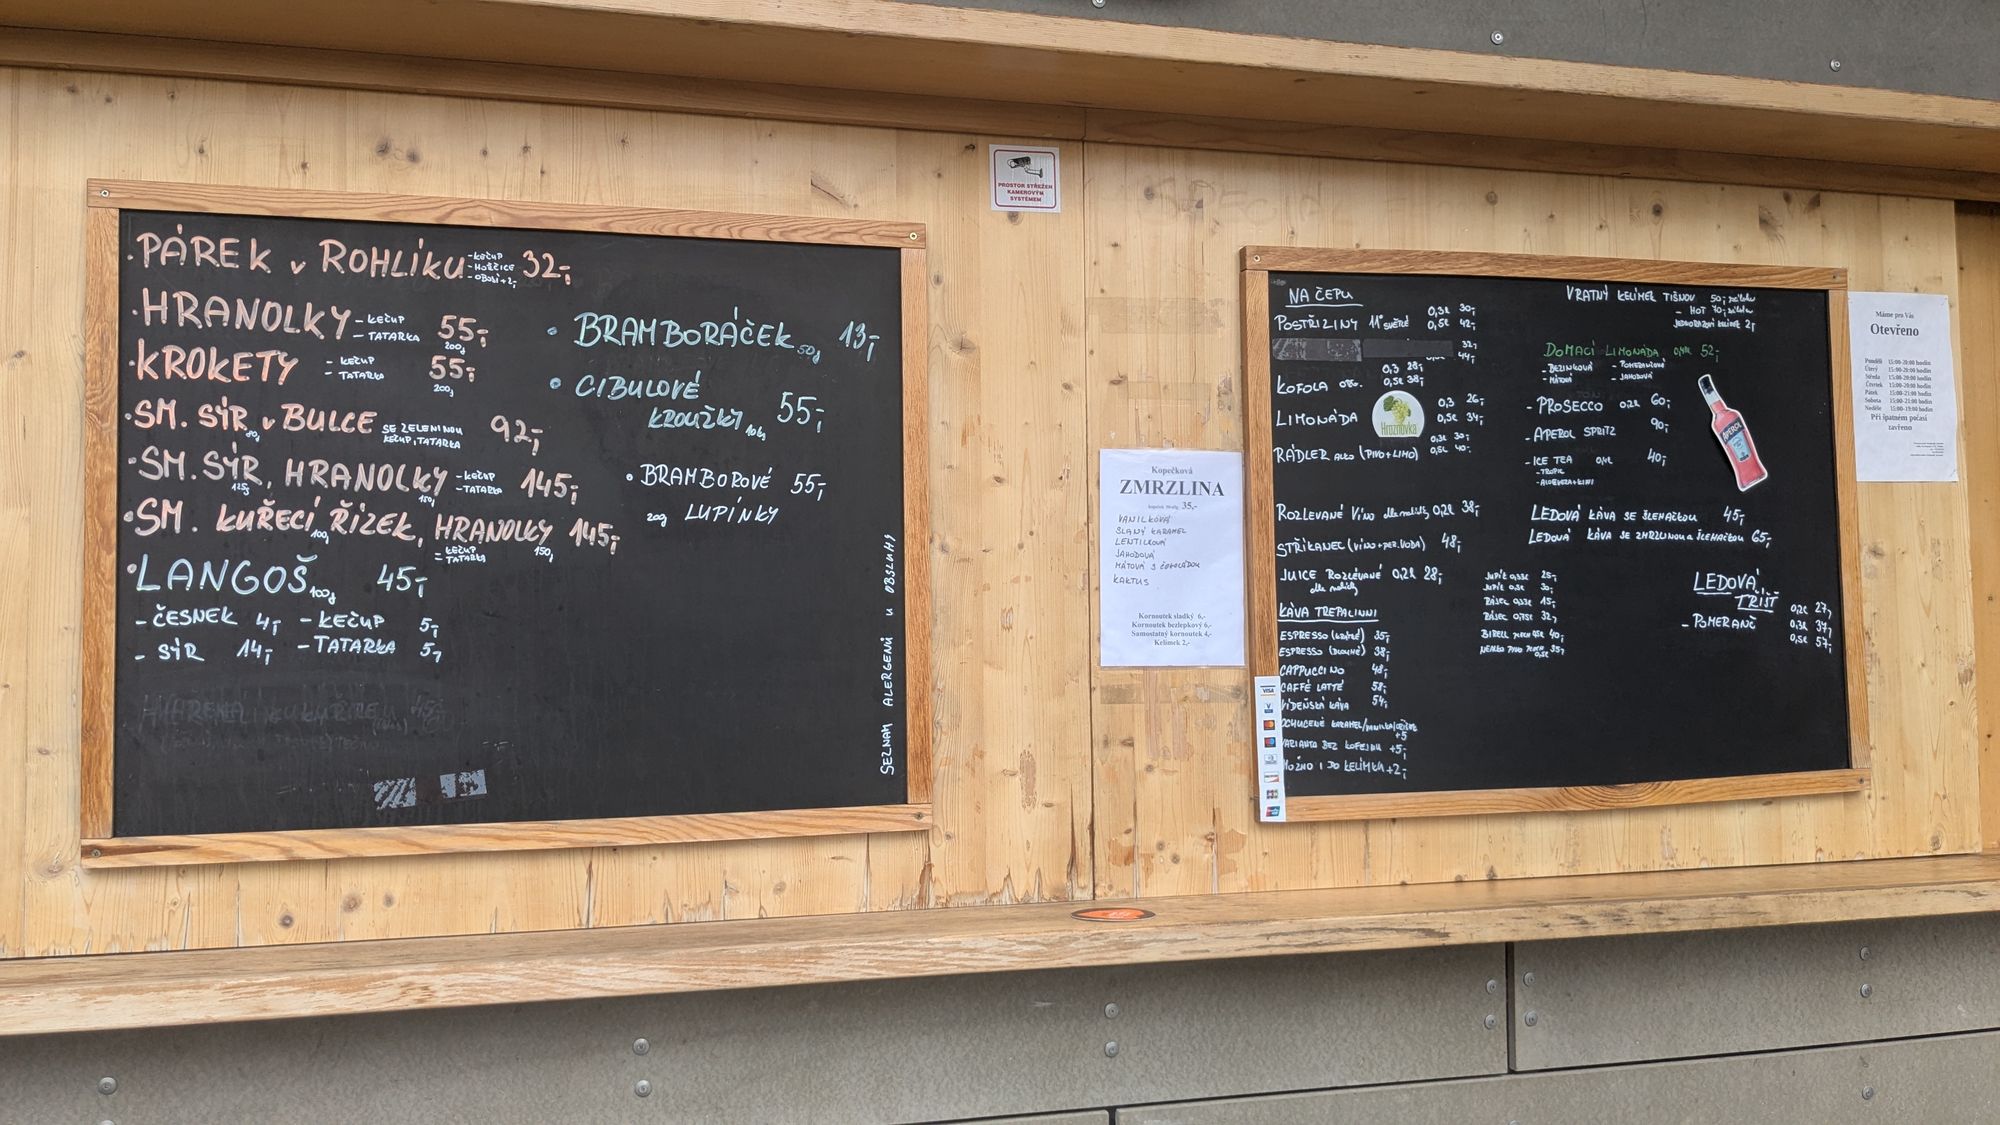 PROSTOR STŘEŽEN
KAMEROVÝM
SYSTÉMEM
PÁREK v ROHLÍKU - KEČUP 32,-
- HOŘČICE
- OBOJÍ +2,-
HRANOLKY - KEČUP 55,-
- TATARKA 200g
KROKETY - KEČUP 55,-
- TATARKA 200g
SM. SÝR v BULCE SE ZELENINOU 92,-
80g KEČUP, TATARKA
SM. SÝR, HRANOLKY - KEČUP 145,-
125g 150g - TATARKA
SM. KUŘECÍ ŘÍZEK, HRANOLKY 145,-
100g - KEČUP 150g
- TATARKA
LANGOŠ 100g 45,-
- ČESNEK 4,- - KEČUP 5,-
- SÝR 14,- - TATARKA 5,-
BRAMBORÁČEK 50g 13,-
CIBULOVÉ
KROUŽKY 55,-
BRAMBOROVÉ 55,-
200g LUPÍNKY
SEZNAM ALERGENŮ U OBSLUHY
Kopečková
ZMRZLINA
35,-
VANILKOVÁ
SLANÝ KARAMEL
LENTILKOVÁ
JAHODOVÁ
MÁTOVÁ S ČOKOLÁDOU
KAKTUS
Kornoutek sladký 6,-
Kornoutek bezlepkový 6,-
Samostatný kornoutek 4,-
Kelímek 2,-
NA ČEPU
POSTŘIŽINY 11° SVĚTLÉ 0,3l 30,-
0,5l 42,-
32,-
44,-
KOFOLA OBG. 0,3 28,-
0,5l 38,-
LIMONÁDA Hroznovka 0,3 26,-
0,5l 34,-
RÁDLER ALKO (PIVO+LIMO) 0,3l 30,-
0,5l 40,-
ROZLÉVANÉ VÍNO dle nabídky 0,2l 38,-
STŘIKANEC (VÍNO+PER.VODA) 48,-
JUICE ROZLÉVANÉ 0,2l 28,-
dle nabídky
KÁVA TREPALINNI
ESPRESSO (KRÁTKÉ) 35,-
ESPRESSO (DLOUHÉ) 38,-
CAPPUCCINO 48,-
CAFFÉ LATTÉ 58,-
VÍDEŇSKÁ KÁVA 54,-
OCHUCENÉ KARAMEL/VANILKA/OŘÍŠEK
+5
VARIANTA BEZ KOFEINU +5,-
MOŽNO I DO KELÍMKA +2,-
VISA
VRATNÝ KELÍMEK TIŠNOV 50,- záloha
- HOT 70,- záloha
JEDNORÁZOVÝ KELÍMEK 2,-
DOMACÍ LIMONÁDA 0,4l 52,-
- BEZINKOVÁ - POMERANČOVÁ
- MÁTOVÁ - JAHODOVÁ
- PROSECCO 0,2l 60,-
- APEROL SPRITZ 90,-
APEROL
- ICE TEA 0,4l 40,-
- TROPIC
- ALOEVERA+KIWI
LEDOVÁ KÁVA SE ŠLEHAČKOU 45,-
LEDOVÁ KÁVA SE ZMRZLINOU A ŠLEHAČKOU 65,-
JUPÍK 0,33l 25,-
JUPÍK 0,5l 30,-
RAJEC 0,33l 15,-
RAJEC 0,75l 32,-
BIRELL PLECH 0,5l 40,-
NEALKO PIVO PLECH 0,5l 35,-
LEDOVÁ
TŘÍŠŤ
- POMERANČ 0,2l 27,-
0,3l 37,-
0,5l 57,-
Máme pro Vás
Otevřeno
Pondělí 15:00-20:00 hodin
Úterý 15:00-20:00 hodin
Středa 15:00-20:00 hodin
Čtvrtek 15:00-20:00 hodin
Pátek 15:00-21:00 hodin
Sobota 15:00-21:00 hodin
Neděle 15:00-19:00 hodin
Při špatném počasí
zavřeno